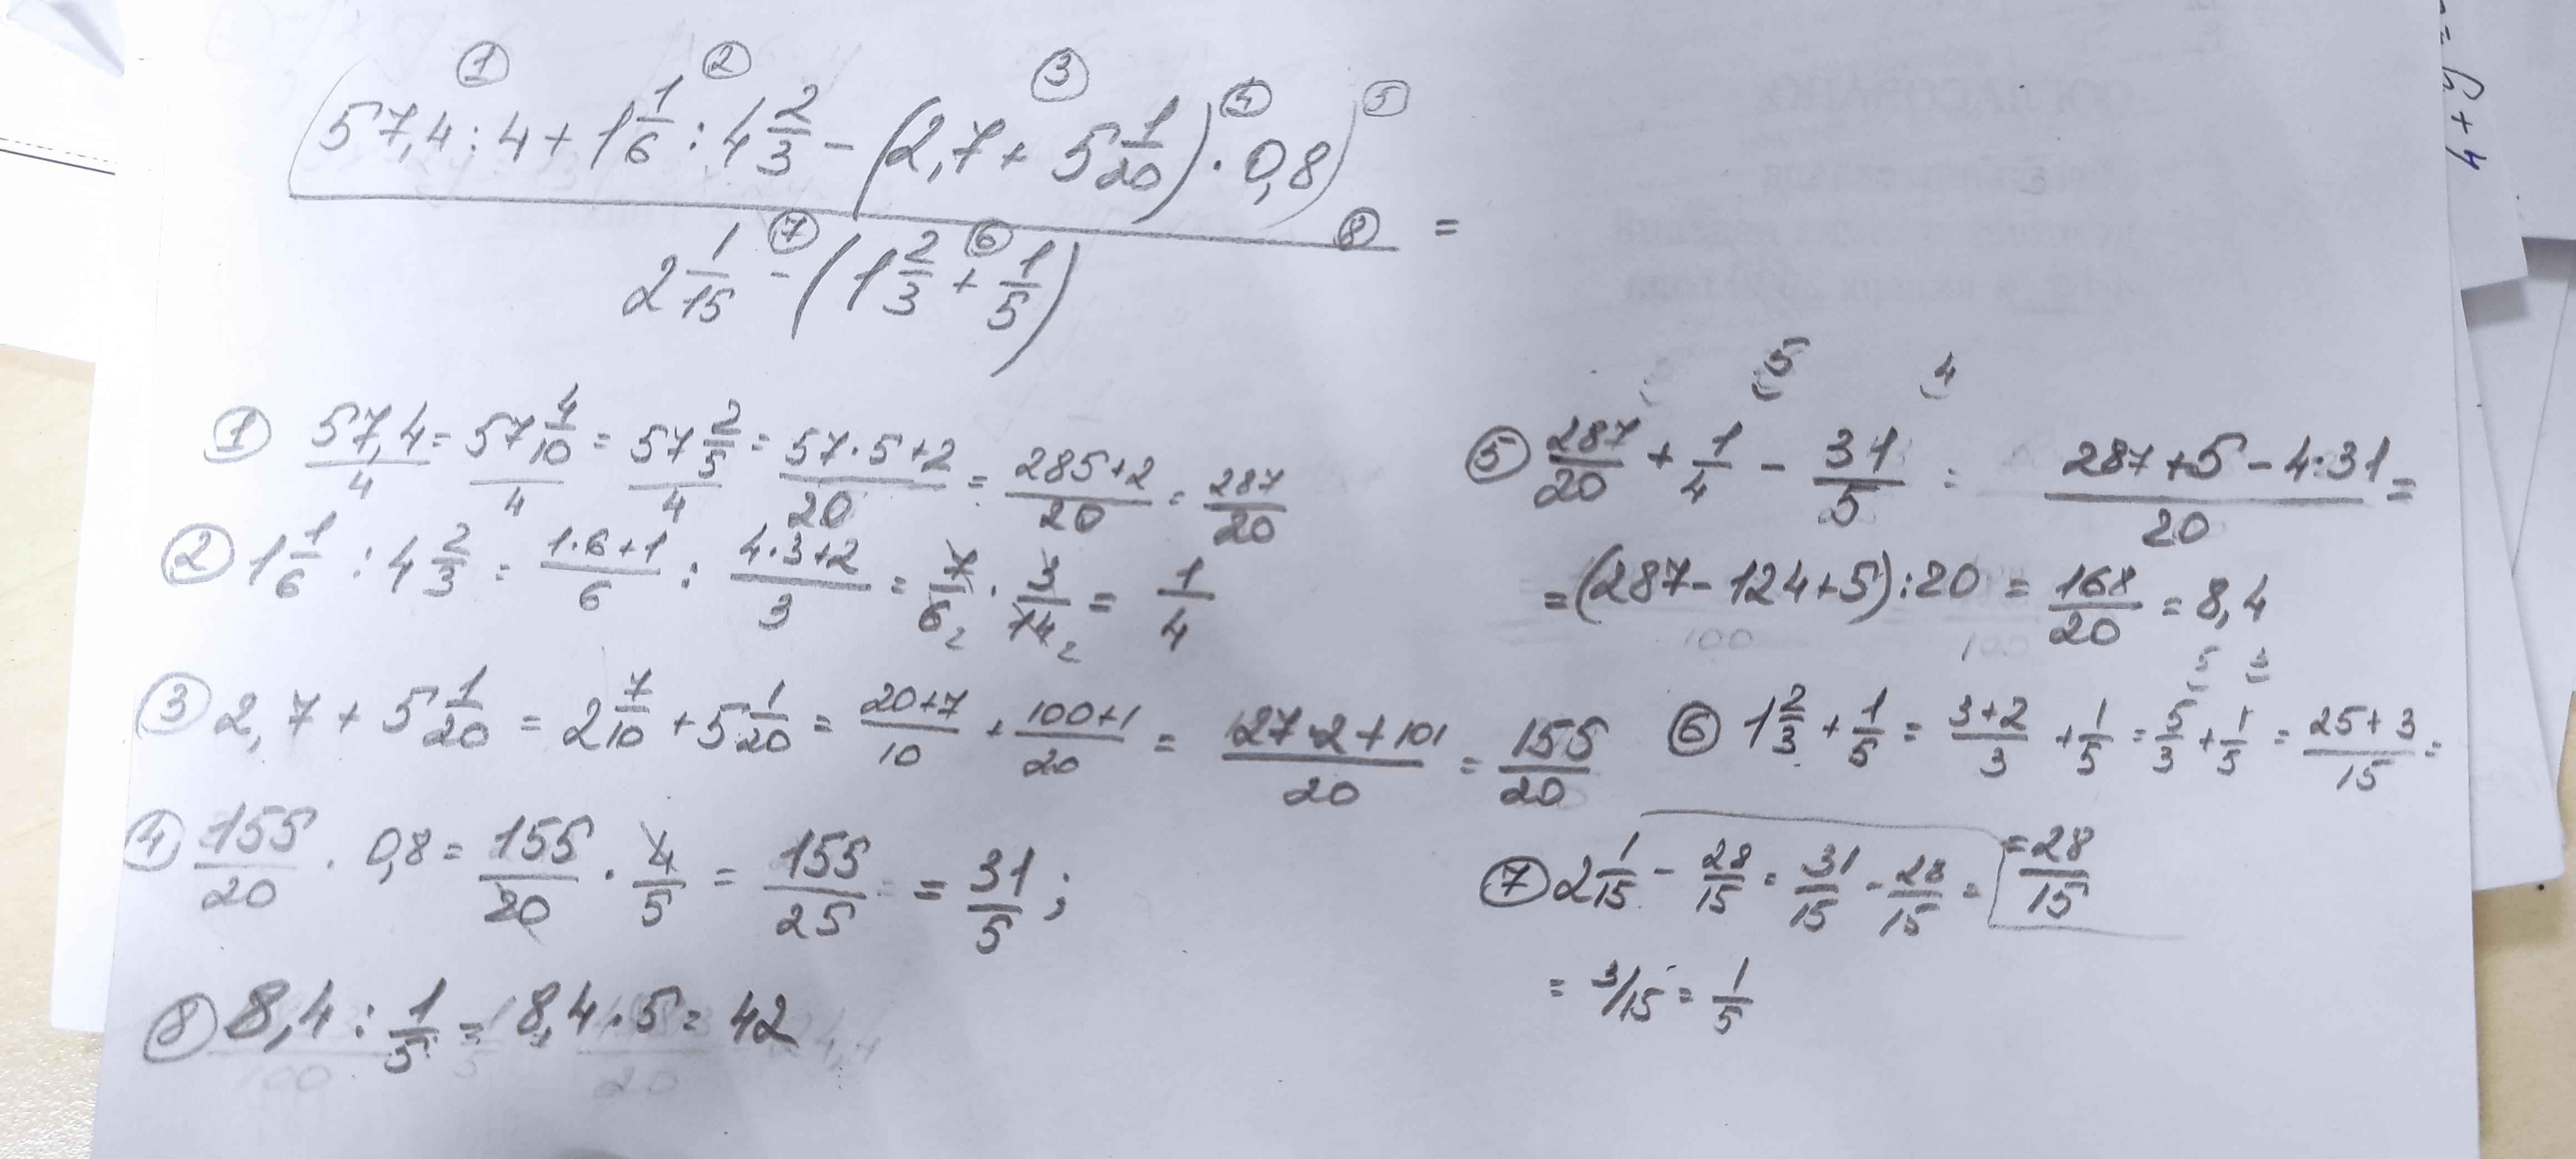 ① ② ③ ④ ⑤
57,4 : 4 + 1 1/6 : 4 2/3 - (2,7 + 5 1/20) · 0,8
⑧ =
⑦ ⑥
2 1/15 - (1 2/3 + 1/5)
① 57,4/4 = 57 4/10/4 = 57 2/5/4 = 57·5+2/20 = 285+2/20 = 287/20
② 1 1/6 : 4 2/3 = 1·6+1/6 : 4·3+2/3 = 7/6 2 · 3/14 2 = 1/4
③ 2,7 + 5 1/20 = 2 7/10 + 5 1/20 = 20+7/10 + 100+1/20 = 27·2+101/20 = 155/20
④ 155/20 · 0,8 = 155/20 · 4/5 = 155/25 = 31/5 ;
⑧ 8,4 : 1/5 = 8,4 · 5 = 42
5 4
⑤ 287/20 + 1/4 - 31/5 = 287+5-4·31/20 =
= (287-124+5) : 20 = 168/20 = 8,4
5 3
⑥ 1 2/3 + 1/5 = 3+2/3 + 1/5 = 5/3 + 1/5 = 25+3/15 =
= 28/15
⑦ 2 1/15 - 28/15 = 31/15 - 28/15 =
= 3/15 = 1/5
4+y=